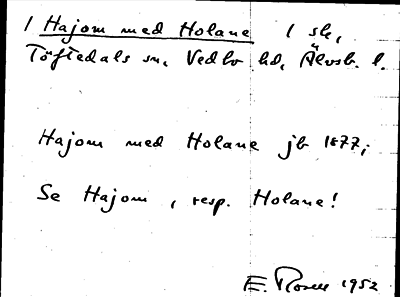 1 Hajom med Holane 1 sk,
Töftedals sn, Vedbo hd, Älvsb. l.
Hajom med Holane jb 1877;
Se Hajom, resp. Holane!
E. Rosell 1952